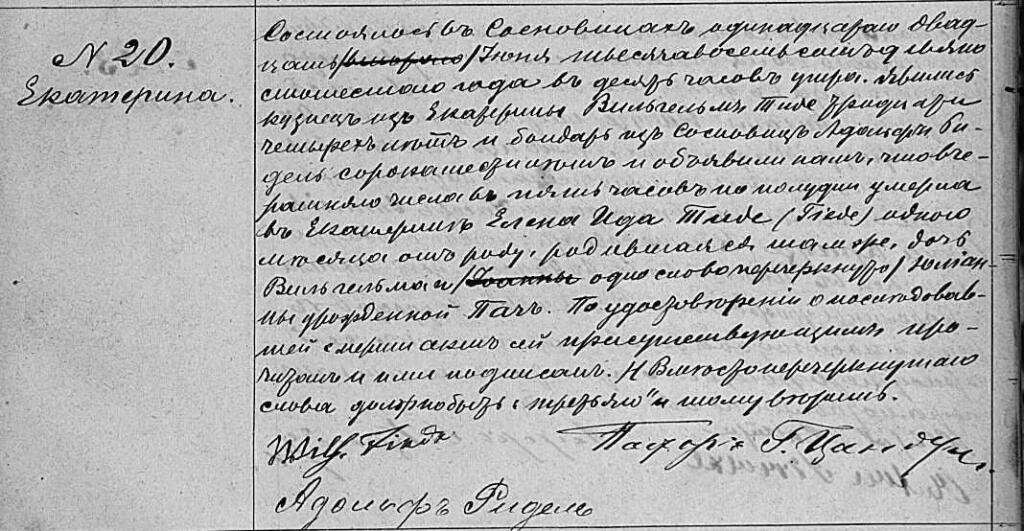 N 20.
Екатерина.
Состоялось въ Сосновицахъ одинадцатаго двад-
цать /втораго/ Іюня тысяча восемь сотъ девяно
стошестого года въ десять часовъ утра. Явились
кузнецъ изъ Екатерины Вильгельмъ Тиде тридцати
четырехъ лѣтъ и бондарь изъ Сосновицъ Адольфъ Ри-
дель сорока шести лѣтъ и объявили намъ, что вче-
рашняго числа въ пять часовъ по полудни умерла
въ Екатеринѣ Елена Ида Тиде (Tiede) одного
мѣсяца отъ роду, родившаяся тамже, дочь
Вильгельма и /Іоанны одно слово перечеркнуто/ Юліан-
ны урожденной Пачъ. По удостовѣреніи о послѣдовав-
шей смерти актъ сей присутствующимъ про-
читанъ и ими подписанъ. Вмѣсто перечеркнутаго
слова должно быть "третьяго" и тому вѣримъ.
Wilh. Tiede Пасторъ Г. Цандеръ.
Адольфъ Ридель